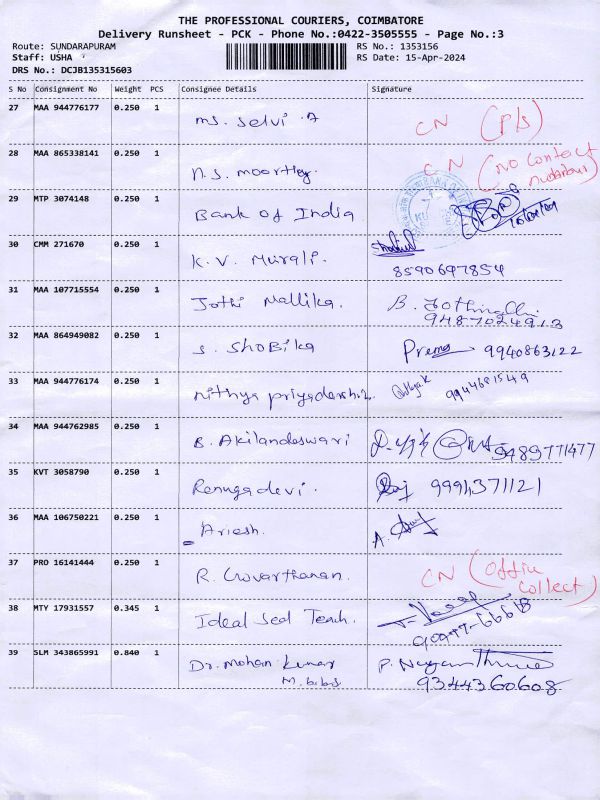 THE PROFESSIONAL COURIERS, COIMBATORE
Delivery Runsheet - PCK - Phone No.:0422-3505555 - Page No.:3
Route: SUNDARAPURAM RS No.: 1353156
Staff: USHA RS Date: 15-Apr-2024
DRS No.: DCJB135315603
S No Consignment No Weight PCS Consignee Details Signature
27 MAA 944776177 0.250 1 Ms. Selvi .A CN (P/s)
28 MAA 865338141 0.250 1 N.S. Moorthy. CN (No Contact
29 MTP 3074148 0.250 1 Bank of India
30 CMM 271670 0.250 1 K.V. Murali. 8590697854
31 MAA 107715554 0.250 1 Jothi Mallika. B.
9487024913
32 MAA 864949082 0.250 1 S. Shobika Prema 9940863122
33 MAA 944776174 0.250 1 Nithya priyadarshini 9944681549
34 MAA 944762985 0.250 1 B. Akilandeswari 9489771477
35 KVT 3058790 0.250 1 Renugadevi. Raj 9991371121
36 MAA 106750221 0.250 1 Ariesh. A.
37 PRO 16141444 0.250 1 R. Govarthanan. CN (Office
Collect)
38 MTY 17931557 0.345 1 Ideal Sed Teach.
90977-66618
39 SLM 343865991 0.840 1 Dr. Mohan Kumar P.
M.b.b.s 9344360608